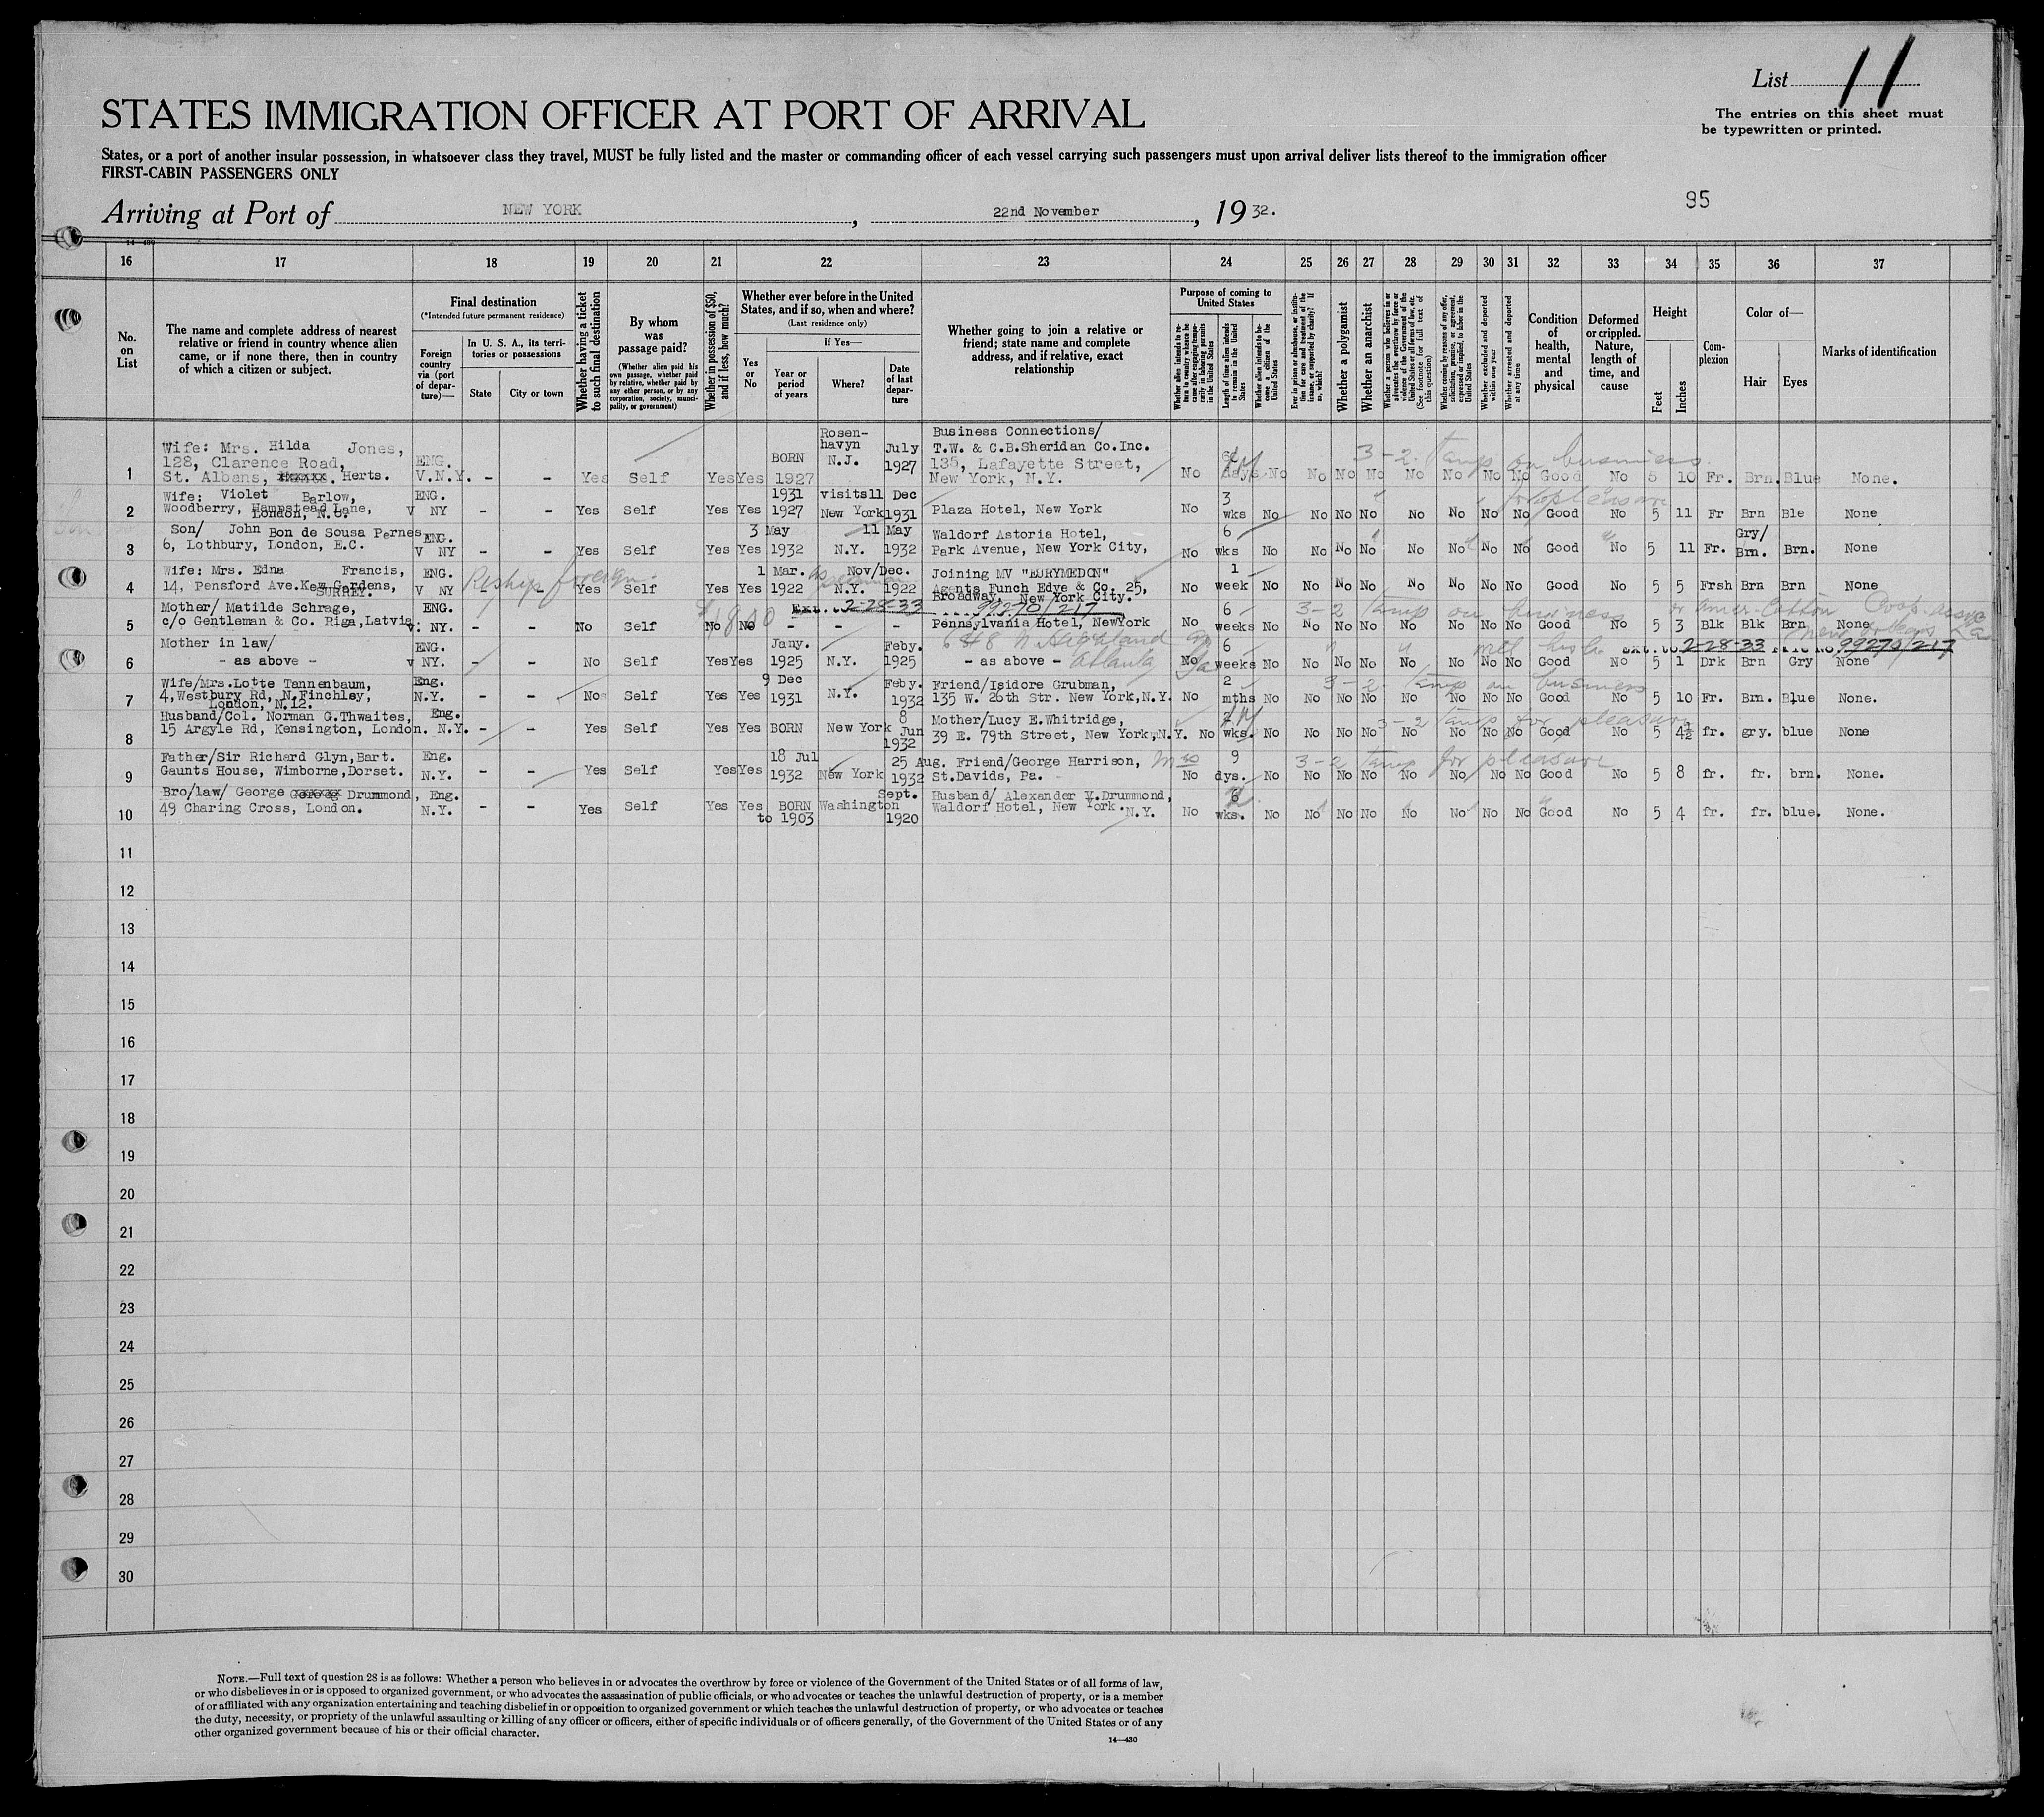 List 11
The entries on this sheet must
be typewritten or printed.
STATES IMMIGRATION OFFICER AT PORT OF ARRIVAL
States, or a port of another insular possession, in whatsoever class they travel, MUST be fully listed and the master or commanding officer of each vessel carrying such passengers must upon arrival deliver lists thereof to the immigration officer
FIRST-CABIN PASSENGERS ONLY
Arriving at Port of NEW YORK, 22nd November, 1932.
95
16 17 18 19 20 21 22 23 24 25 26 27 28 29 30 31 32 33 34 35 36 37
No. on List
The name and complete address of nearest
relative or friend in country whence alien
came, or if none there, then in country
of which a citizen or subject.
Final destination
(*Intended future permanent residence)
Foreign country via (port of departure)—
In U. S. A., its territories or possessions
State
City or town
Whether having a ticket to such final destination
By whom was passage paid?
(Whether alien paid his own passage, whether paid by relative, whether paid by any other person, or by any corporation, society, municipality, or government)
Whether in possession of $50, and if less, how much?
Whether ever before in the United States, and if so, when and where?
(Last residence only)
Yes or No
If Yes—
Year or period of years
Where?
Date of last departure
Whether going to join a relative or
friend; state name and complete
address, and if relative, exact
relationship
Purpose of coming to United States
Whether alien intends to return to country whence he came after engaging temporarily in laboring pursuits in the United States
Length of time alien intends to remain in the United States
Whether alien intends to become a citizen of the United States
Ever in prison or almshouse, or institution for care and treatment of the insane, or supported by charity? If so, which?
Whether a polygamist
Whether an anarchist
Whether a person who believes in or advocates the overthrow by force or violence of the Government of the United States or all forms of law, etc. (See footnote for full text of this question)
Whether coming by reason of any offer, solicitation, promise, or agreement, expressed or implied, to labor in the United States
Whether excluded and deported within one year
Whether arrested and deported at any time
Condition of health, mental and physical
Deformed or crippled. Nature, length of time, and cause
Height
Feet
Inches
Complexion
Color of—
Hair
Eyes
Marks of identification
1 Wife: Mrs. Hilda Jones,
128, Clarence Road,
St. Albans, Herts.
ENG. V.N.Y. - - Yes Self Yes Yes BORN 1927 Rosenhavyn N.J. July 1927
Business Connections/
T.W. & C.B.Sheridan Co.Inc.
135, Lafayette Street,
New York, N.Y.
No days No No No No No No No No Good No 5 10 Fr. Brn. Blue None.
3-2 temp on business
2 Wife: Violet Barlow,
Woodberry, Hampstead Lane,
London, N.6.
ENG. V NY - - Yes Self Yes Yes 1931 1927 visits New York 11 Dec 1931
Plaza Hotel, New York
No 3 wks No No No No No No No No Good No 5 11 Fr Brn Ble None
for pleasure
3 Son/ John Bon de Sousa Pernes
6, Lothbury, London, E.C.
ENG. V NY - - Yes Self Yes Yes 3 May 1932 N.Y. 11 May 1932
Waldorf Astoria Hotel,
Park Avenue, New York City,
No 6 wks No No No No No No No No Good No 5 11 Fr. Gry/ Brn. Brn. None
4 Wife: Mrs. Edna Francis,
14, Pensford Ave.Kew Gardens,
SURREY.
ENG. V NY - - Yes Self Yes Yes 1 Mar. 1922 N.Y. Nov/Dec. 1922
Reship foreign
Joining MV "EURYMEDON"
Agents Funch Edye & Co. 25,
Broadway, New York City.
No 1 week No No No No No No No No Good No 5 5 Frsh Brn Brn None
5 Mother/ Matilde Schrage,
c/o Gentleman & Co. Riga,Latvia
ENG. v: NY. - - No Self No No - - -
$1800
Ext. to 2-28-33 99270/217
Pennsylvania Hotel, NewYork
No 6 weeks No No No No No No No No Good No 5 3 Blk Blk Brn None
3-2 temp on business
New Orleans La
6 Mother in law/
- as above -
ENG. v NY. - No Self Yes Yes Jany. 1925 N.Y. Feby. 1925
- as above -
648 N. Highland Av
Atlanta Ga
No 6 weeks No No No No No No No No Good No 5 1 Drk Brn Gry None
Ext. to 2-28-33 File No. 99270/217
7 Wife/Mrs.Lotte Tannenbaum,
4,Westbury Rd, N.Finchley,
London, N.12.
Eng. N.Y. - - No Self Yes Yes 9 Dec 1931 N.Y. Feby. 1932
Friend/Isidore Grubman,
135 W. 26th Str. New York,N.Y.
No 2 mths No No No No No No No No Good No 5 10 Fr. Brn. Blue None.
3-2 temp on business
8 Husband/Col. Norman G.Thwaites,
15 Argyle Rd, Kensington, London.
Eng. N.Y. - - Yes Self Yes Yes BORN New York 8 Jun 1932
Mother/Lucy E.Whitridge,
39 E. 79th Street, New York,N.Y.
No wks. No No No No No No No No Good No 5 4½ fr. gry. blue None
3-2 temp for pleasure
9 Father/Sir Richard Glyn,Bart.
Gaunts House, Wimborne,Dorset.
Eng. N.Y. - - Yes Self Yes Yes 18 Jul 1932 New York 25 Aug. 1932
Friend/George Harrison,
St.Davids, Pa.
No 9 dys. No No No No No No No No Good No 5 8 fr. fr. brn. None.
3-2 temp for pleasure
10 Bro/law/ George Drummond,
49 Charing Cross, London.
Eng. N.Y. - - Yes Self Yes Yes BORN to 1903 Washington Sept. 1920
Husband/ Alexander V.Drummond,
Waldorf Hotel, New York. N.Y.
No 6 wks. No No No No No No No No Good No 5 4 fr. fr. blue. None.
11
12
13
14
15
16
17
18
19
20
21
22
23
24
25
26
27
28
29
30
NOTE.—Full text of question 28 is as follows: Whether a person who believes in or advocates the overthrow by force or violence of the Government of the United States or of all forms of law,
or who disbelieves in or is opposed to organized government, or who advocates the assassination of public officials, or who advocates or teaches the unlawful destruction of property, or is a member
of or affiliated with any organization entertaining and teaching disbelief in or opposition to organized government or which teaches the unlawful destruction of property, or who advocates or teaches
the duty, necessity, or propriety of the unlawful assaulting or killing of any officer or officers, either of specific individuals or of officers generally, of the Government of the United States or of any
other organized government because of his or their official character.
14—430